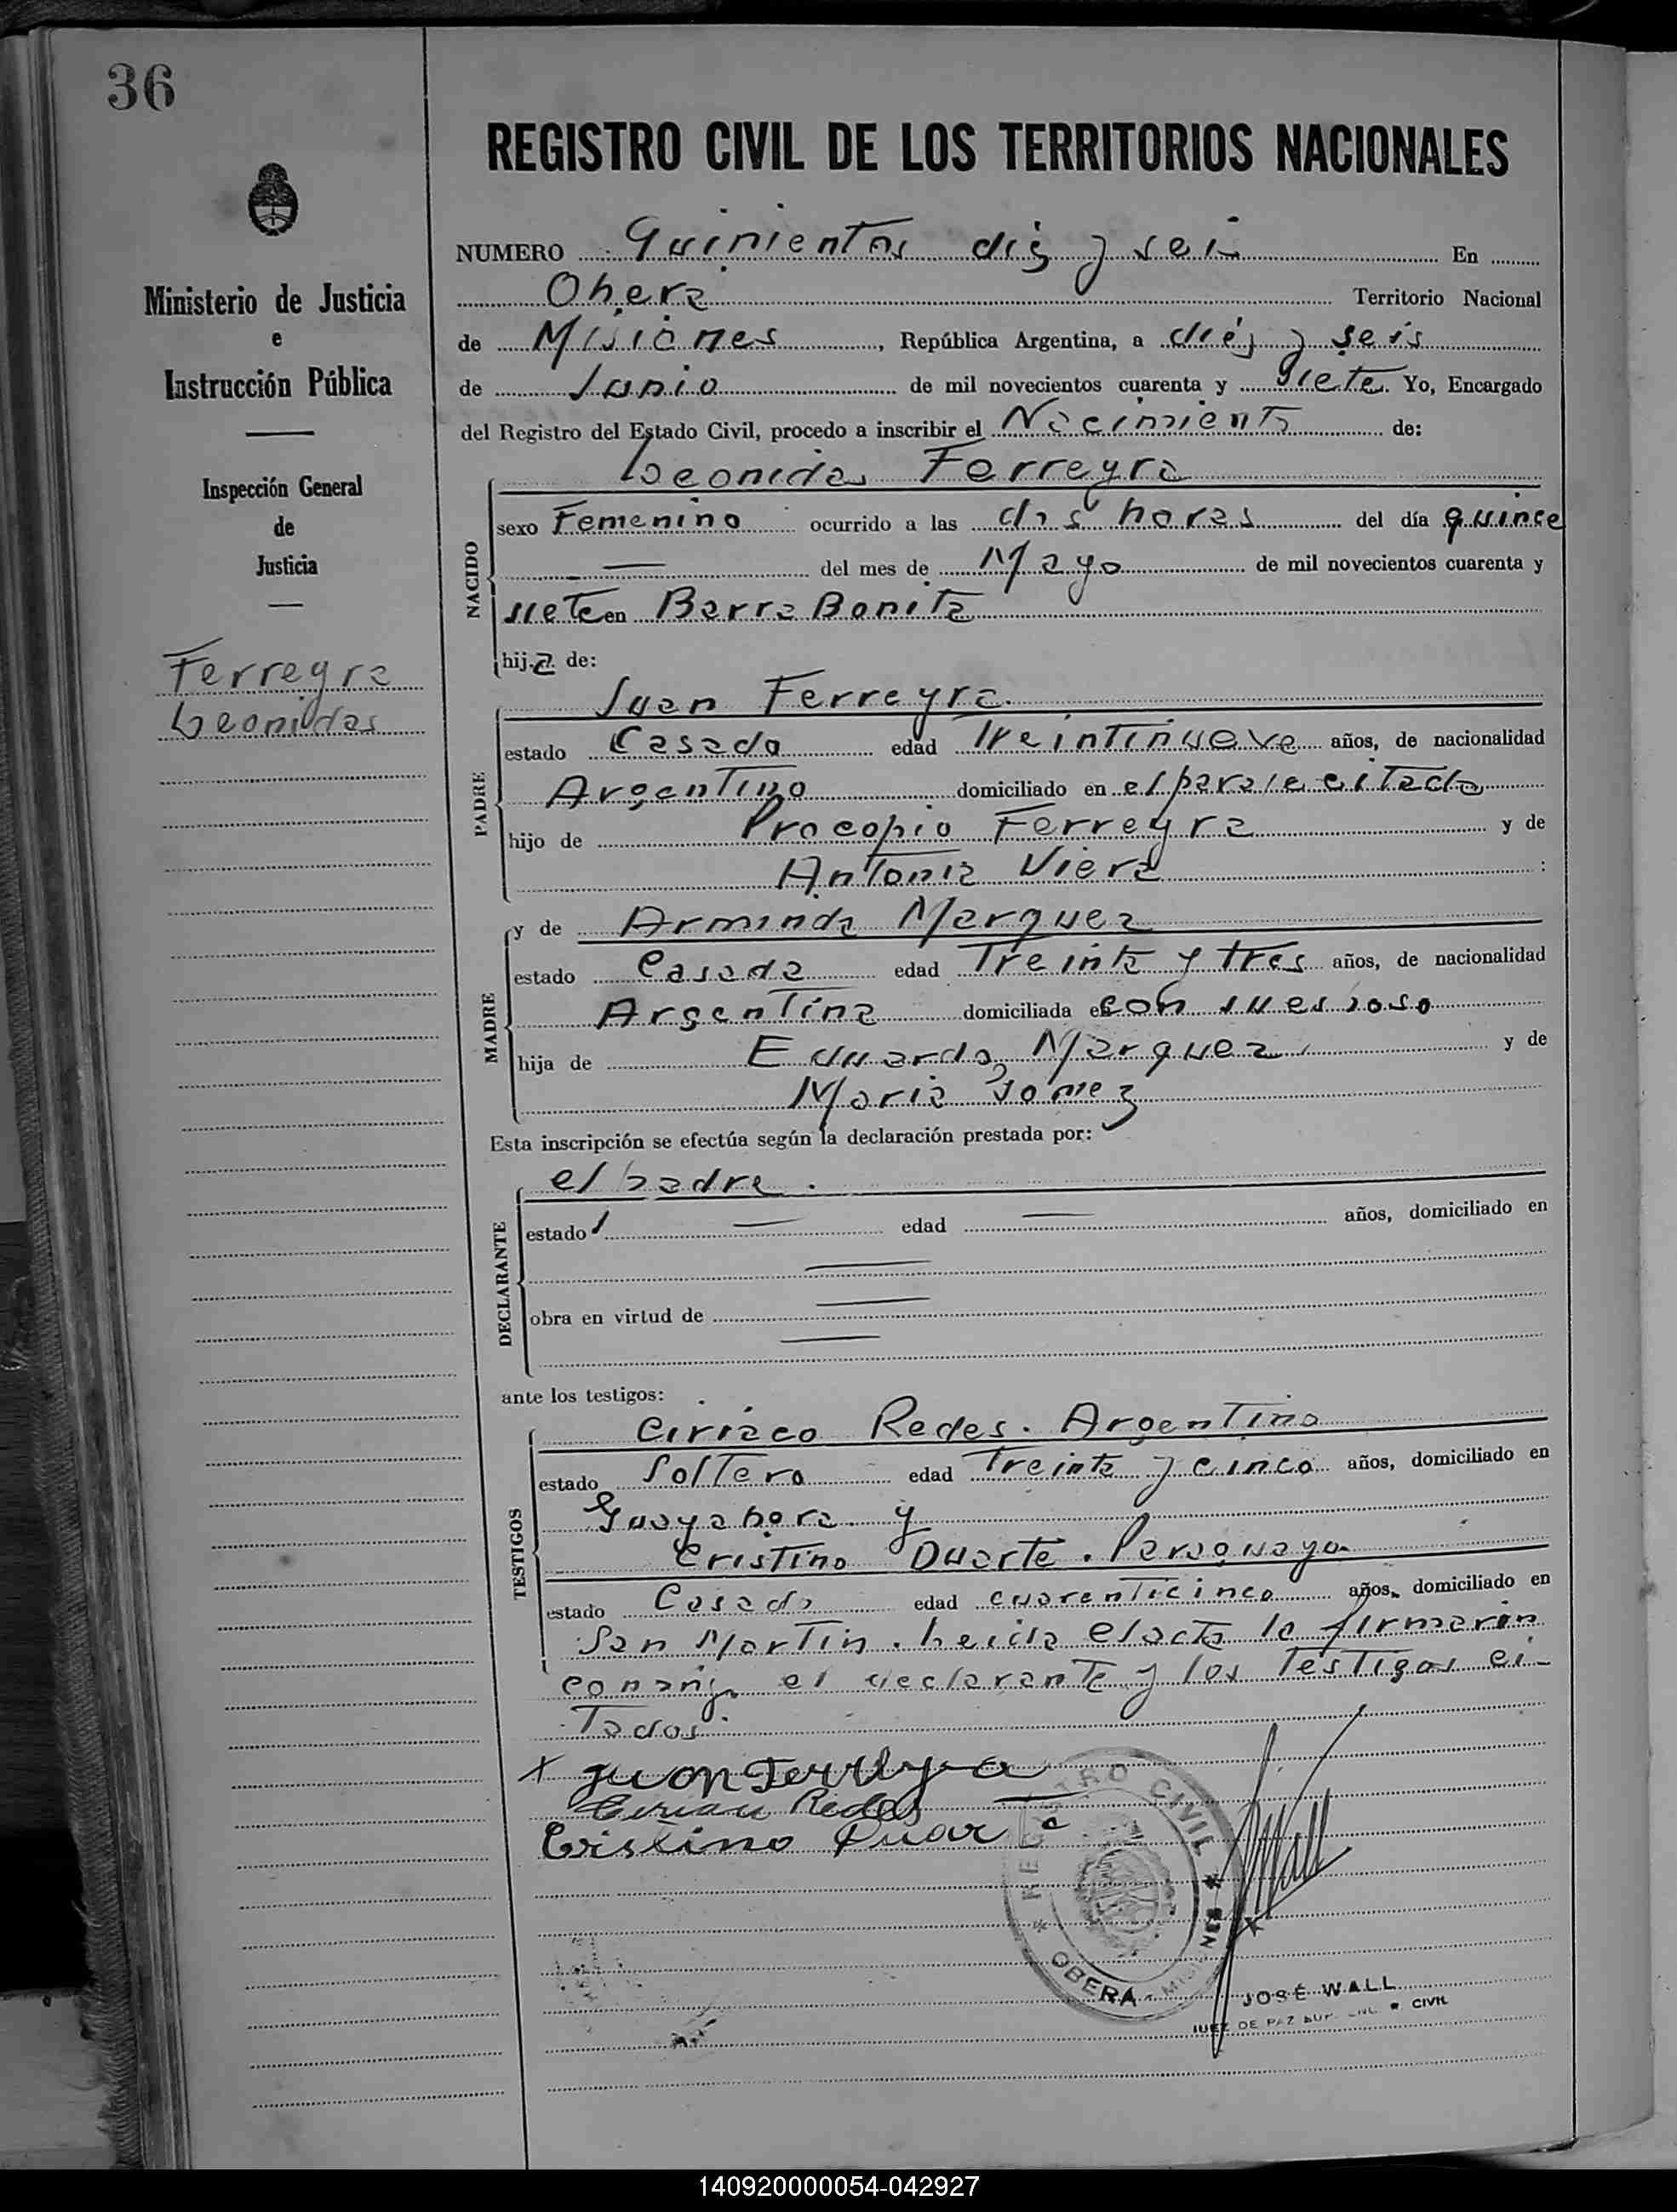 36
REGISTRO CIVIL DE LOS TERRITORIOS NACIONALES
Ministerio de Justicia
e
Instrucción Pública
Inspección General
de
Justicia
Ferreyra
Leonidas
NUMERO Quinientos diez y seis En
Oberá Territorio Nacional
de Misiones, República Argentina, a diez y seis
de Junio de mil novecientos cuarenta y Siete. Yo, Encargado
del Registro del Estado Civil, procedo a inscribir el Nacimiento de:
NACIDO
Leonidas Ferreyra
sexo Femenino ocurrido a las dos horas del día quince
— del mes de Mayo de mil novecientos cuarenta y
siete en Barra Bonita
hija de:
PADRE
Juan Ferreyra.
estado Casado edad Treintinueve años, de nacionalidad
Argentino domiciliado en el paraje citado
hijo de Procopio Ferreyra y de
Antonia Viera :
MADRE
y de Arminda Marquez
estado Casada edad Treinta y tres años, de nacionalidad
Argentina domiciliada en con su esposo
hija de Eduardo Marquez y de
Maria Gomez
Esta inscripción se efectúa según la declaración prestada por:
DECLARANTE
el padre.
estado — edad — años, domiciliado en
—
obra en virtud de —
—
ante los testigos:
TESTIGOS
Ciriaco Redes. Argentino
estado Soltero edad Treinta y cinco años, domiciliado en
Guayabera y
Cristino Duarte. Paraguayo
estado Casado edad cuarenticinco años, domiciliado en
San Martin. Leida el acta la firmaron
conmigo el declarante y los Testigos ci-
Tados.
x Juan Ferreyra
Redes
Cristino Duarte
REGISTRO CIVIL
OBERA - MISIONES
JOSÉ WALL
JUEZ DE PAZ CIVIL
140920000054-042927